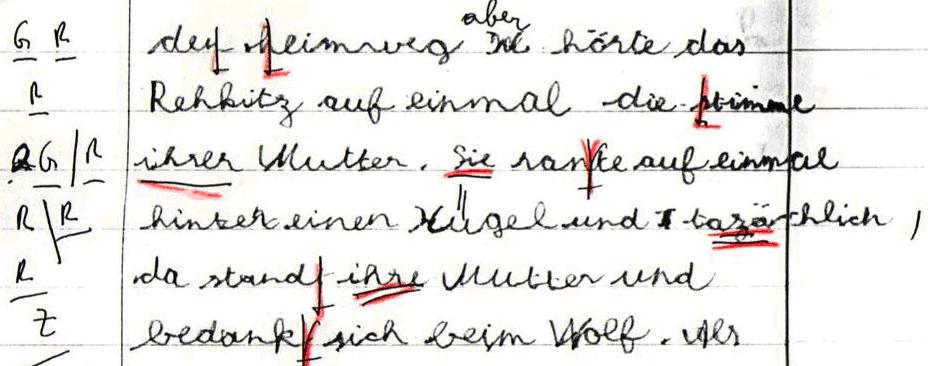 G R den heimweg aber hörte das
R Rehkitz auf einmal die stimme
G/R ihrer Mutter. Sie rante auf einmal
R R hinter einen Hügel und tazächlich,
R da stand ihre Mutter und
Z bedank sich beim Wolf. Als